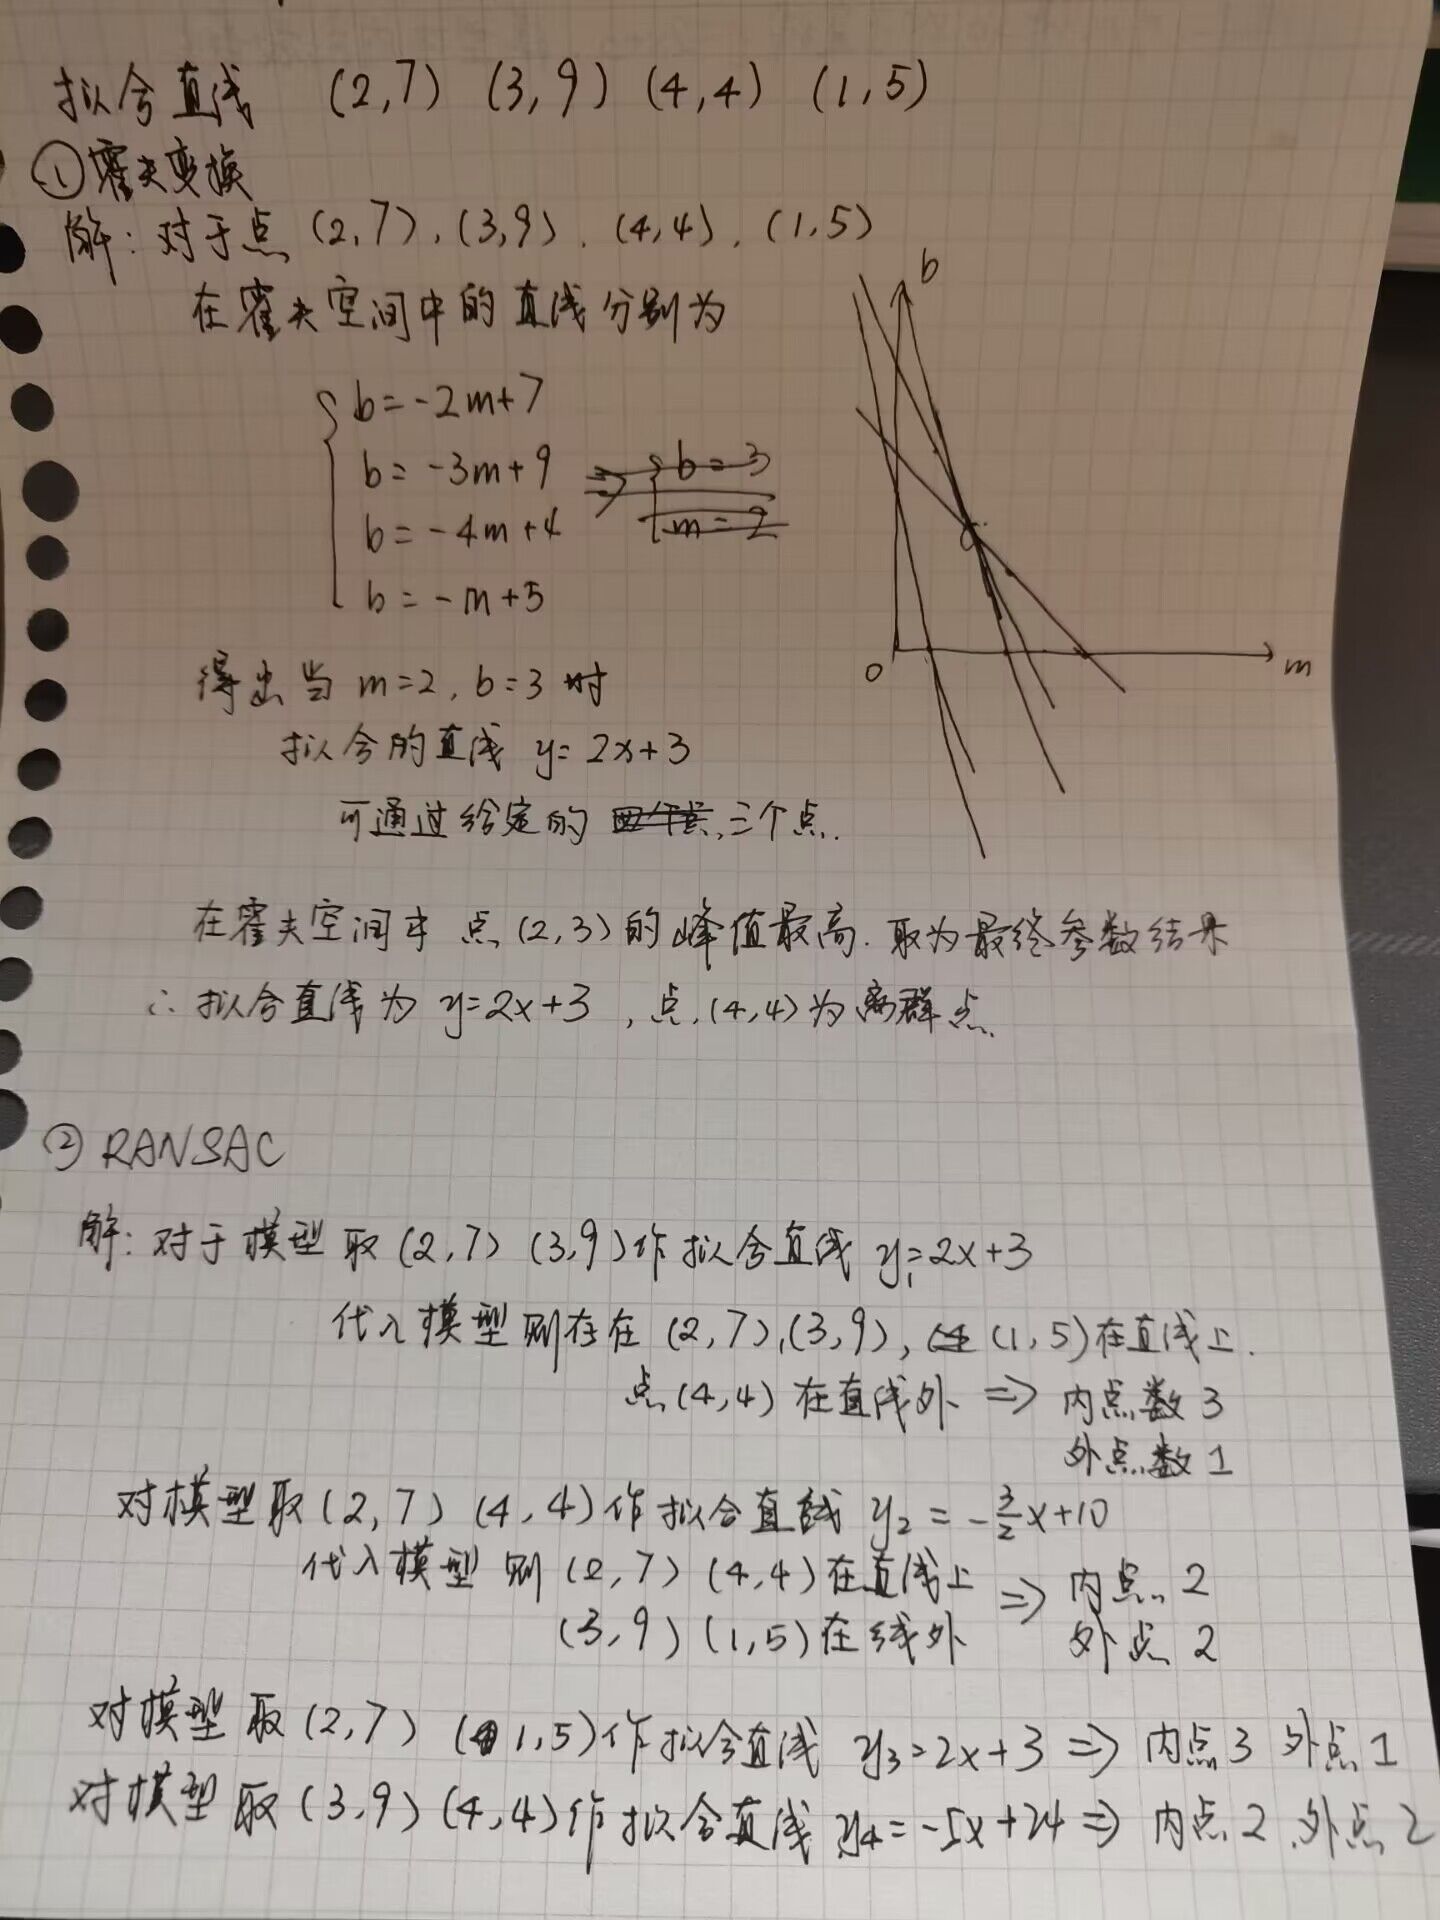 拟合直线 (2,7) (3,9) (4,4) (1,5)
①霍夫变换
解:对于点 (2,7), (3,9), (4,4), (1,5)
在霍夫空间中的直线分别为
b
b=-2m+7
b=-3m+9 ⇒ b=3
b=-4m+4 m=2
b=-m+5
0 m
得出当 m=2, b=3 时
拟合的直线 y=2x+3
可通过给定的 三个点.
在霍夫空间中 点(2,3)的峰值最高. 取为最终参数结果
∴拟合直线为 y=2x+3 , 点(4,4)为离群点
② RANSAC
解:对于模型取(2,7) (3,9)作拟合直线 y₁=2x+3
代入模型则存在 (2,7),(3,9), (1,5)在直线上.
点(4,4)在直线外 ⇒ 内点数3
外点数1
对模型取(2,7) (4,4)作拟合直线 y₂ = -3/2x+10
代入模型则(2,7) (4,4)在直线上 ⇒ 内点 2
(3,9) (1,5)在线外 外点 2
对模型取(2,7) (1,5)作拟合直线 y₃=2x+3 ⇒ 内点3 外点1
对模型取(3,9) (4,4)作拟合直线 y₄=-5x+24 ⇒ 内点2 外点2